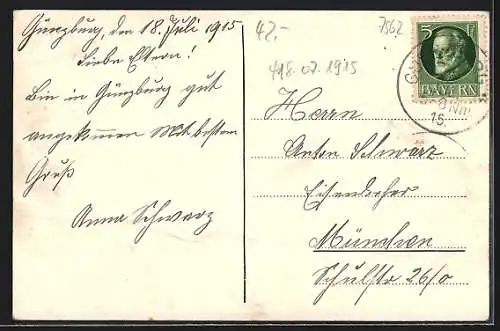 Günzburg, den 18. Juli 1915
Liebe Eltern!
Bin in Günzburg gut
angekommen Mit bestem
Gruß
Anna Schwarz
42.-
7562
18.07.1915
5 Pf
BAYERN
8 Nm
15
Herrn
Anton Schwarz
München
Schulstr 26/0